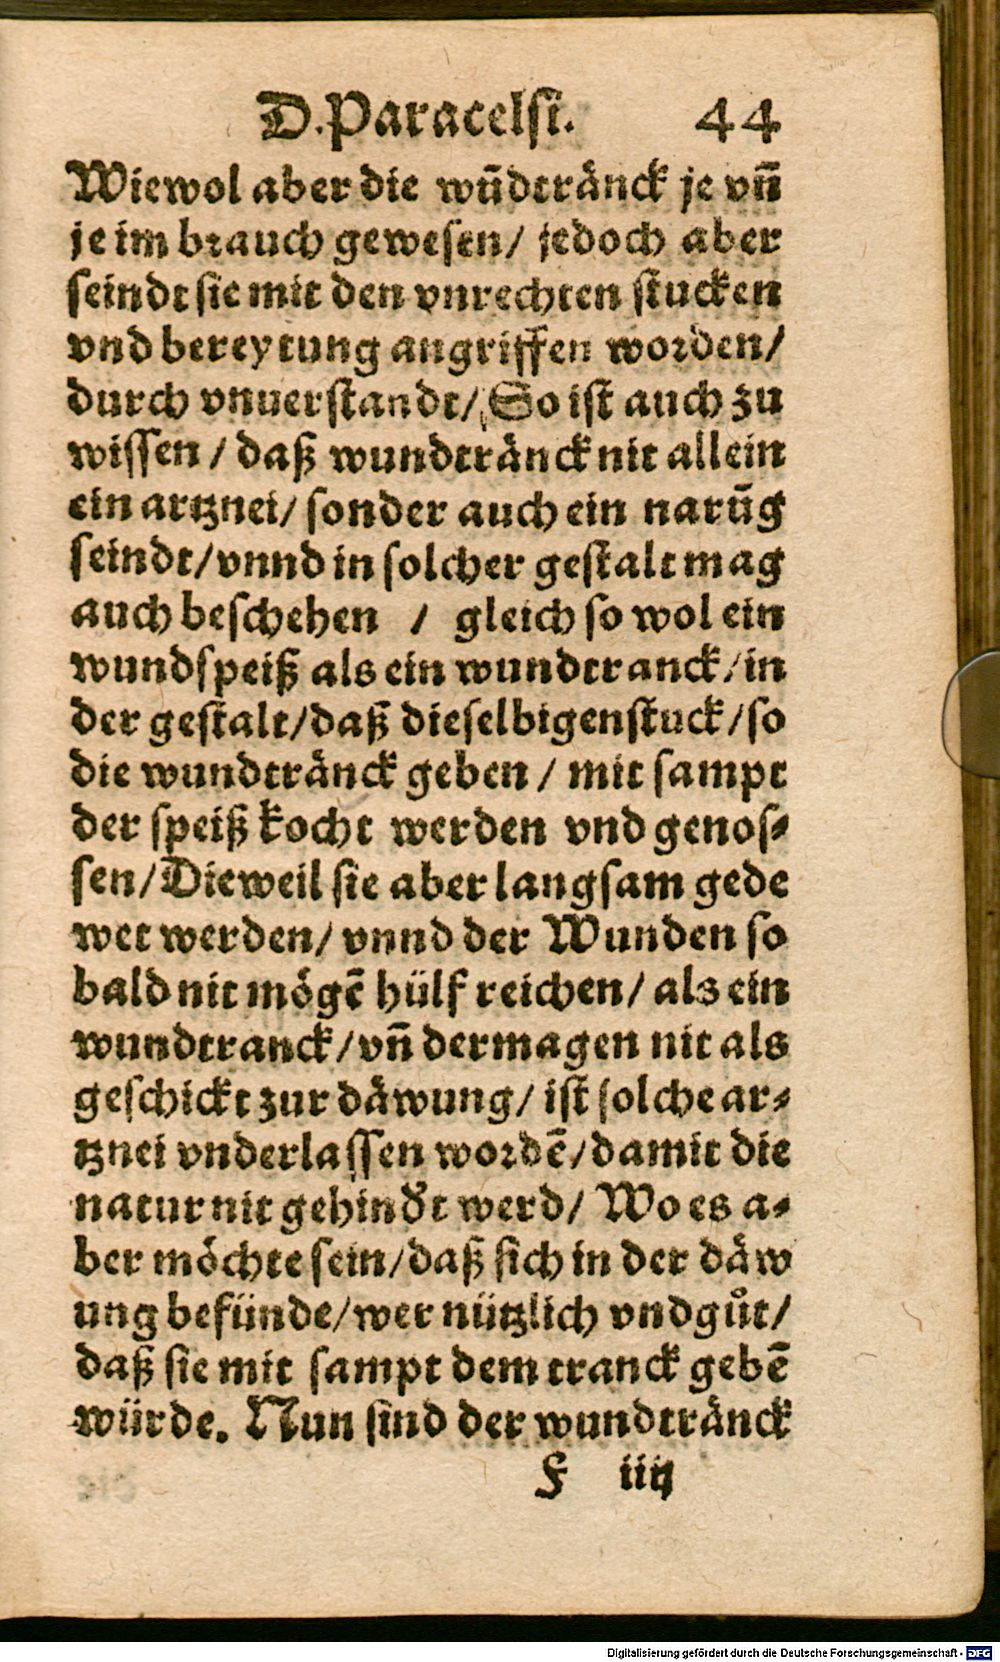 D. Paracelsi. 44
Wiewol aber die wūdtränck je vñ
je im brauch gewesen/ jedoch aber
seindt sie mit den vnrechten stucken
vnd bereytung angriffen worden/
durch vnuerstandt/ So ist auch zu
wissen / daß wundtränck nit allein
ein artznei/ sonder auch ein narūg
seindt/vnnd in solcher gestalt mag
auch beschehen / gleich so wol ein
wundspeiß als ein wundtranck/in
der gestalt/daß dieselbigenstuck/so
die wundtränck geben / mit sampt
der speiß kocht werden vnd genos-
sen/Dieweil sie aber langsam gede
wet werden/ vnnd der Wunden so
bald nit mögē hülf reichen/ als ein
wundtranck/vñ dermagen nit als
geschickt zur däwung/ ist solche ar-
tznei vnderlassen wordē/damit die
natur nit gehindt werd/ Wo es a-
ber möchte sein/daß sich in der däw
ung befünde/wer nützlich vnd gůt/
daß sie mit sampt dem tranck gebē
würde. Nun sind der wundtränck
F iiij
Digitalisierung gefördert durch die Deutsche Forschungsgemeinschaft - DFG